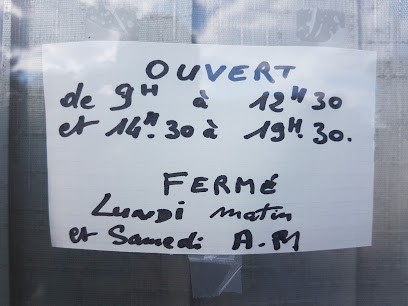 OUVERT
de 9H à 12H30
et 14H.30 à 19H.30.
FERMÉ
LUNDI matin
et Samedi A.M